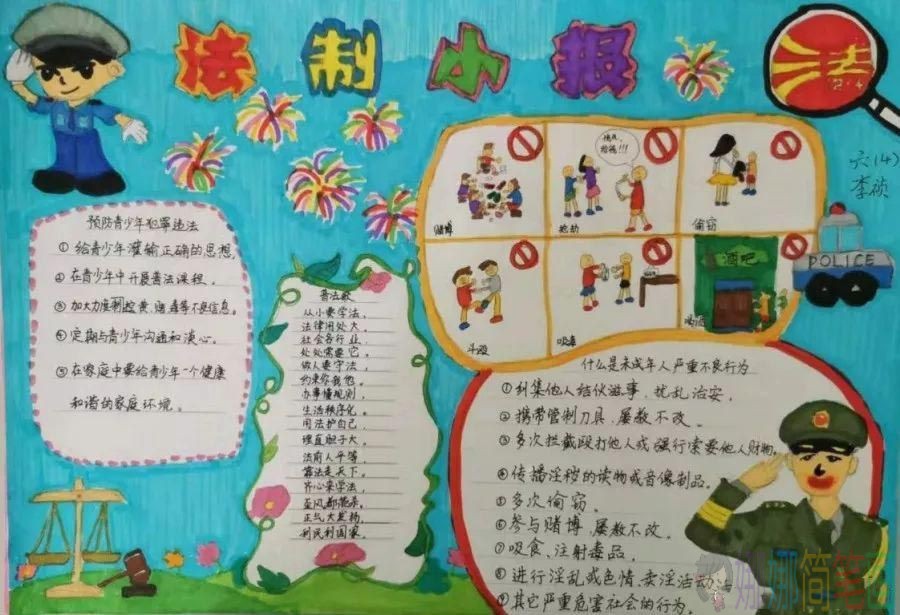 法制小报
法
12·4
六(4)
李祯
预防青少年犯罪违法
①给青少年灌输正确的思想。
②在青少年中开展普法课程。
④定期与青少年沟通和谈心。
⑤在家庭中要给青少年一个健康
和谐的家庭环境。
普法歌
从小要学法,
法律用处大。
社会各行业,
处处需要它。
做人要守法,
约束你我他。
办事懂规则,
生活秩序化。
用法护自己,
理直胆子大。
法前人平等
靠法走天下。
齐心来学法,
歪风都管杀。
正气大发扬,
利民利国家。
赌博
抢劫
给钱!!!
偷窃
斗殴
吸毒
酒吧
POLICE
什么是未成年人严重不良行为
①纠集他人结伙滋事,扰乱治安。
②携带管制刀具,屡教不改。
③多次拦截殴打他人或强行索要他人财物。
④传播淫秽的读物或音像制品。
⑤多次偷窃。
⑥参与赌博,屡教不改。
⑦吸食、注射毒品。
⑧进行淫乱或色情、卖淫活动
⑨其它严重危害社会的行为。
娜娜简笔画